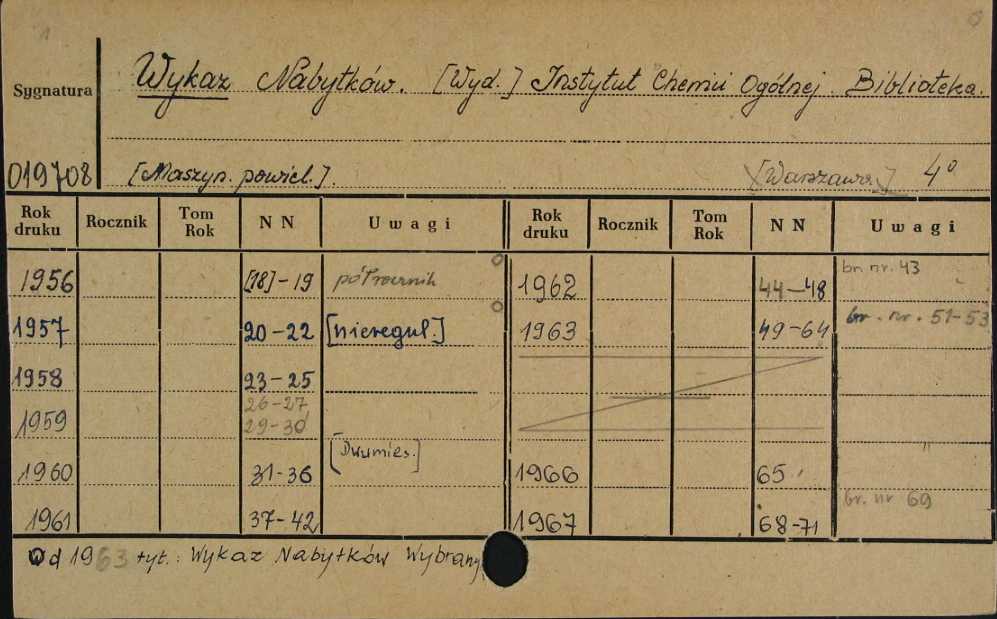 Sygnatura Wykaz Nabytków. [Wyd.] Instytut Chemii Ogólnej. Biblioteka.
019708 [Maszyn. powiel.]. [Warszawa] 4°
Rok druku Rocznik Tom Rok N N Uwagi Rok druku Rocznik Tom Rok N N Uwagi
1956 [18]-19 półrocznik 1962 44-48 br. nr. 43
1957 20-22 [nieregul.] 1963 49-64 br. nr. 51-53
1958 23-25
1959 26-27 29-30
1960 31-36 [Dwumies.] 1966 65
1961 37-42 1967 68-71 br. nr 69
Od 1963 tyt.: Wykaz Nabytków Wybrany